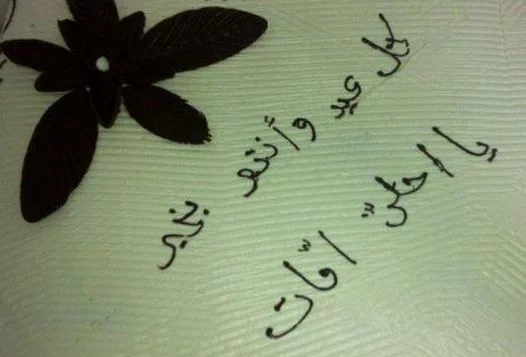 كل عيد وأنتم بخير
يا احلى امّات